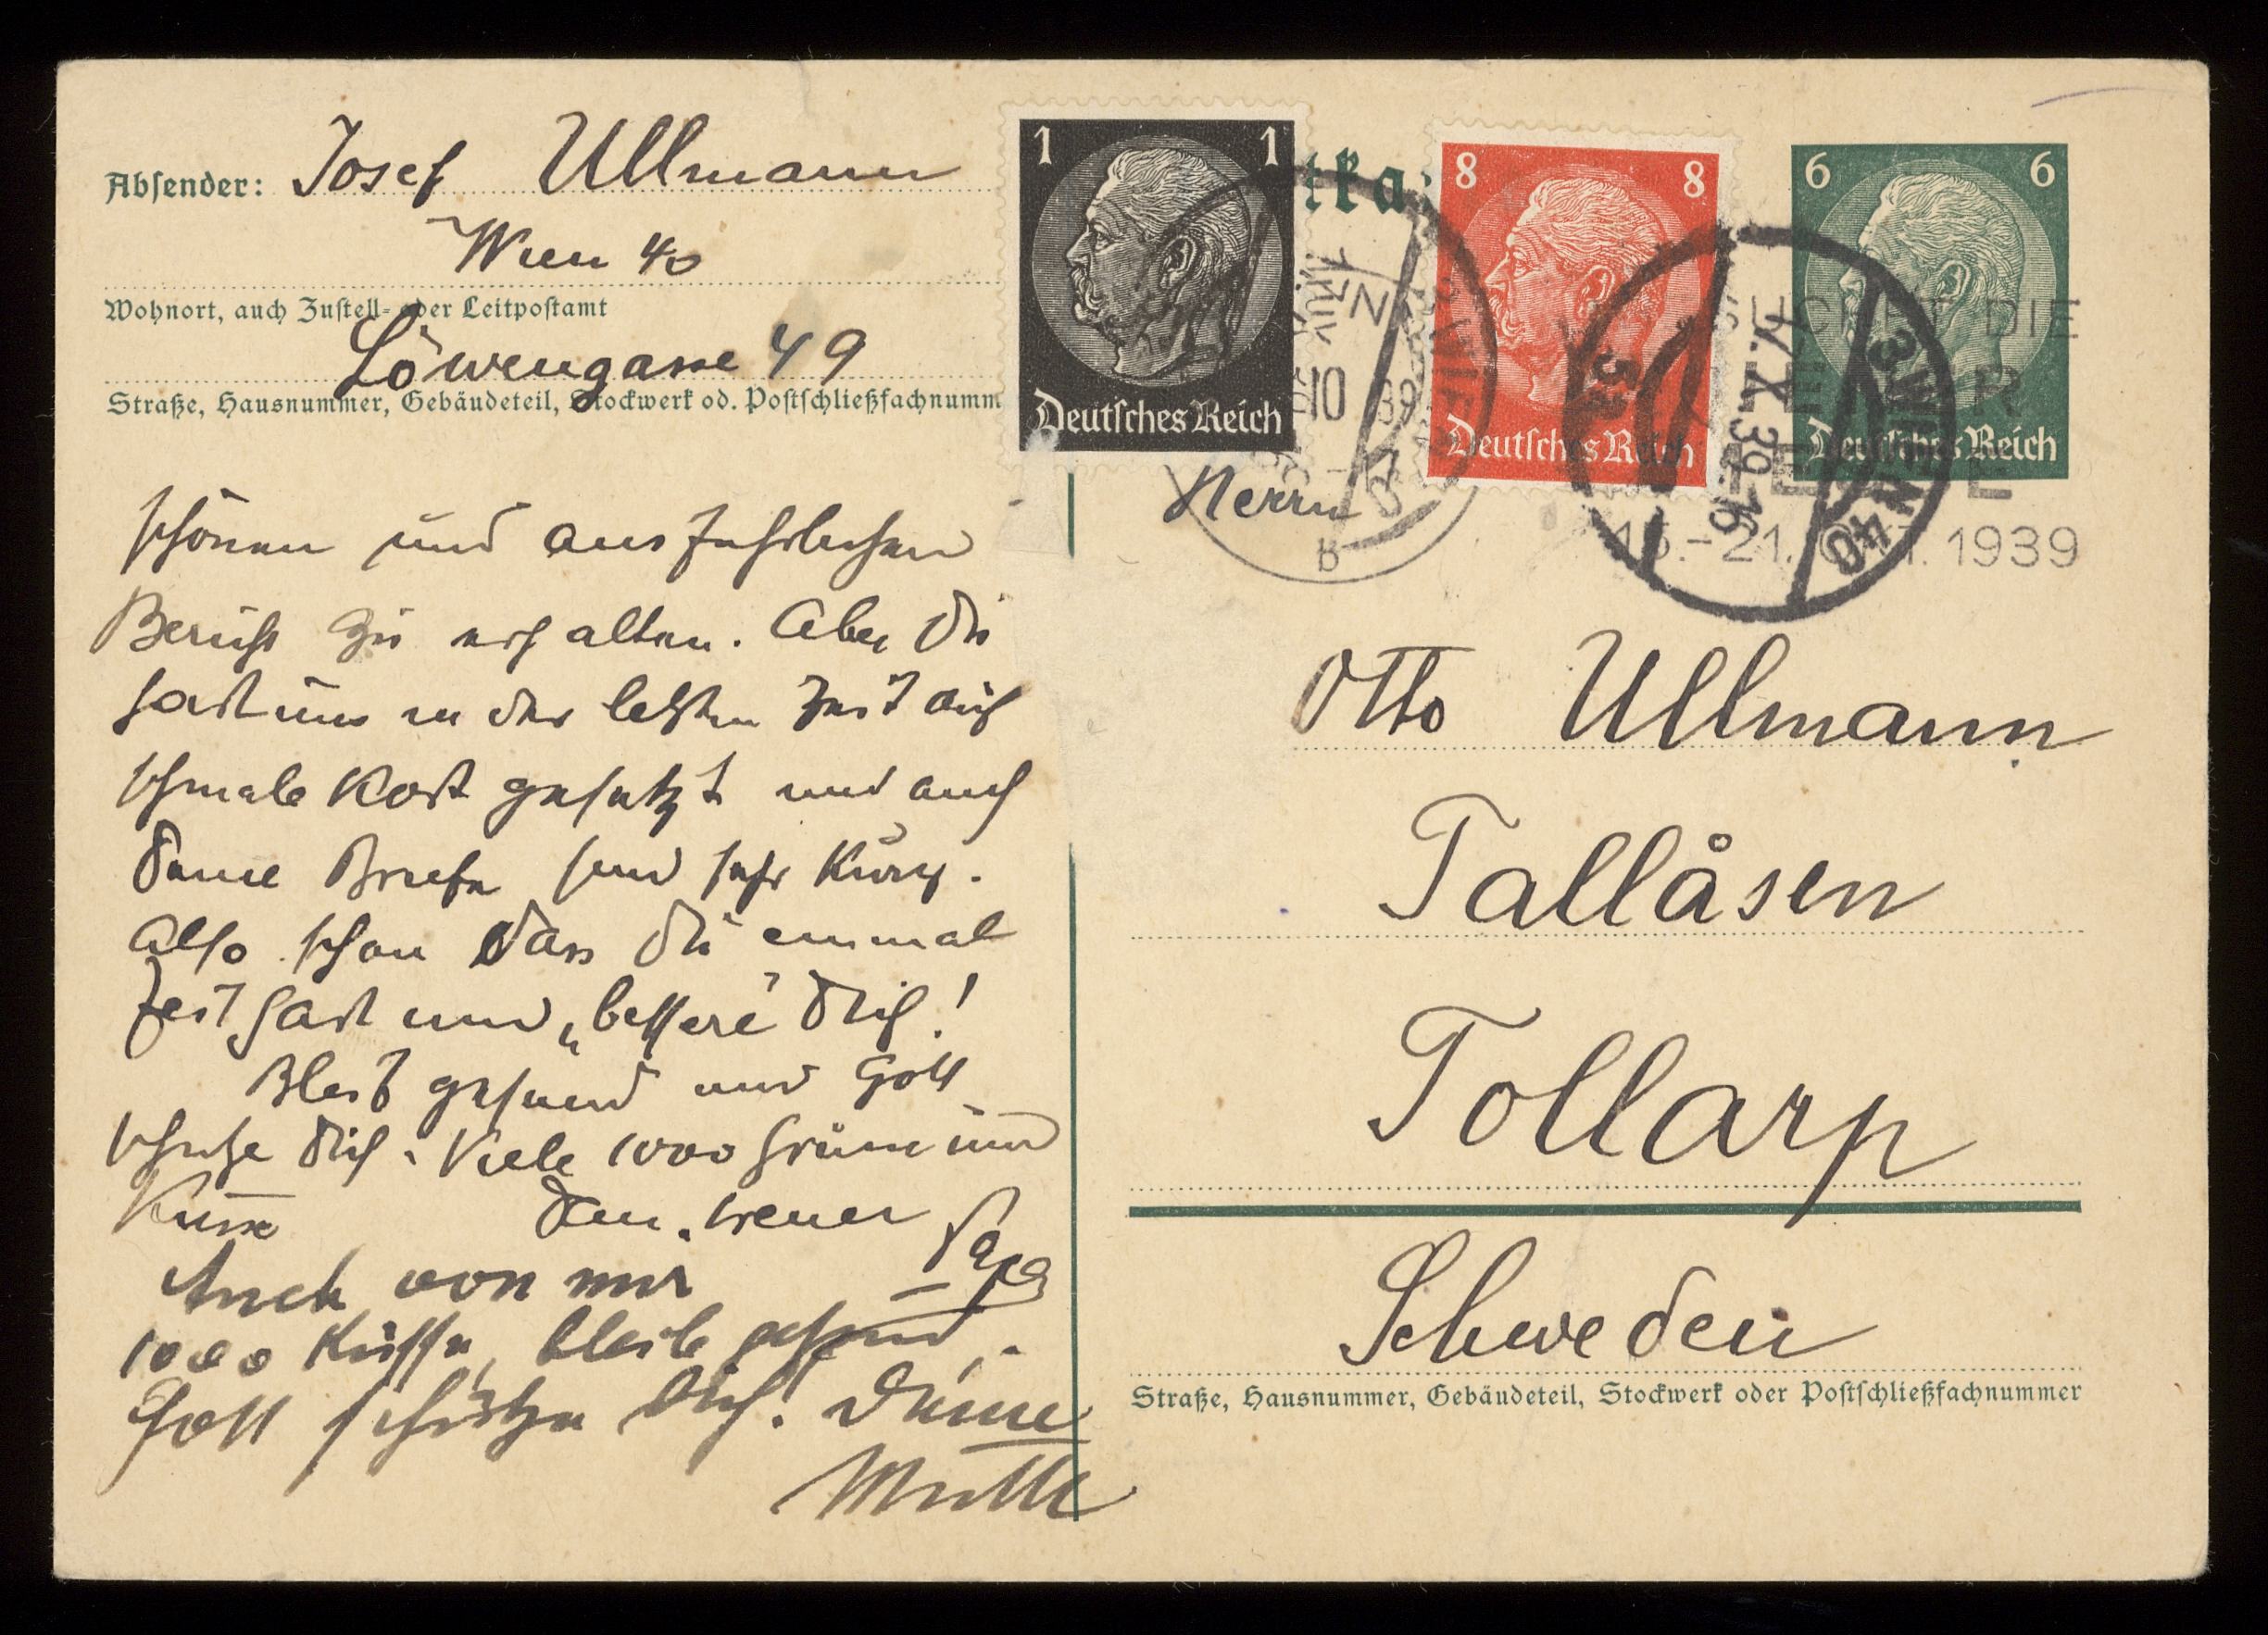 Absender: Josef Ullmann
Wien 40
Wohnort, auch Zustell- oder Leitpostamt
Löwengasse 49
Straße, Hausnummer, Gebäudeteil, Stockwerk od. Postschließfachnumm
schönen und ausführlichen
Bericht zu erhalten. Aber Du
hast uns in der letzten Zeit auf
schmale Kost gesetzt und auch
Deine Briefe sind sehr kurz.
Also schau dass Du einmal
Zeit hast und „bessere" Dich!
Bleib gesund und Gott
schütze Dich. Viele 1000 Grüsse und
Küsse Dein treuer Papa
Auch von mir
1000 Küsse, bleibe gesund,
Gott schütze Dich! Deine
Mutti
1 1
Deutsches Reich
tka
8 8
Deutsches Reich
6 6
Deutsches Reich
3 WIEN 40
7.X.39.16
DIE
15.-21. OKT. 1939
Herrn
Otto Ullmann
Tallåsen
Tollarp
Schweden
Straße, Hausnummer, Gebäudeteil, Stockwerk oder Postschließfachnummer